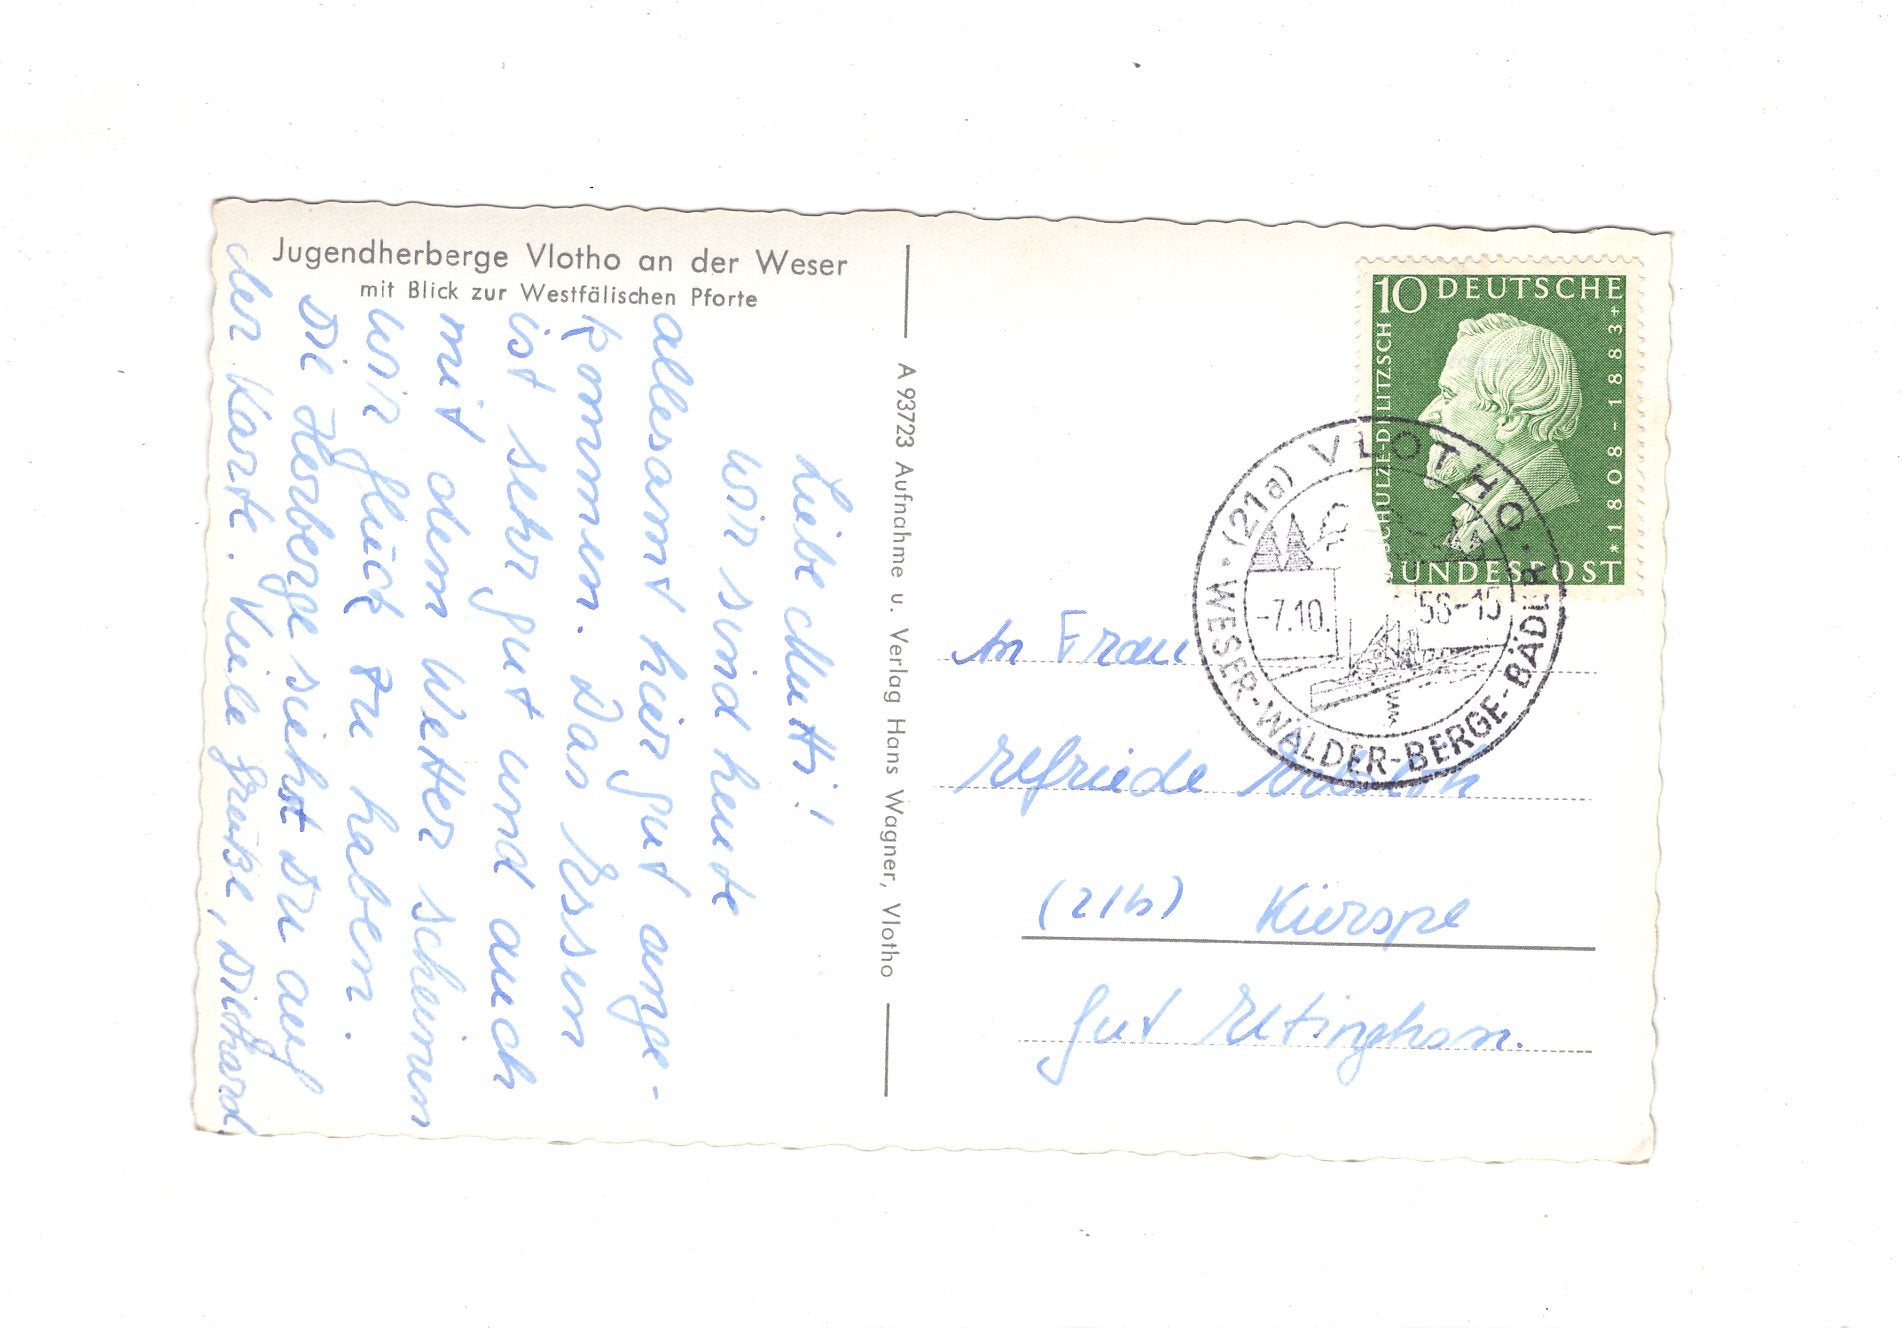 Jugendherberge Vlotho an der Weser
mit Blick zur Westfälischen Pforte
Liebe Mutti!
Wir sind heute
allesamt hier gut ange-
kommen. Das Essen
ist sehr gut und auch
mit dem Wetter scheinen
wir Glück zu haben.
Die Herberge siehst Du auf
der Karte. Viele Grüße, Diethard
A 93723 Aufnahme u. Verlag Hans Wagner, Vlotho
10 DEUTSCHE
BUNDESPOST
SCHULZE-DELITZSCH
*1808-1883+
(21a) VLOTHO
-7.10. 58-15
WESER-WÄLDER-BERGE-BÄDER
An Frau
Elfriede
(21b) Kierspe
Gut Eltingham.